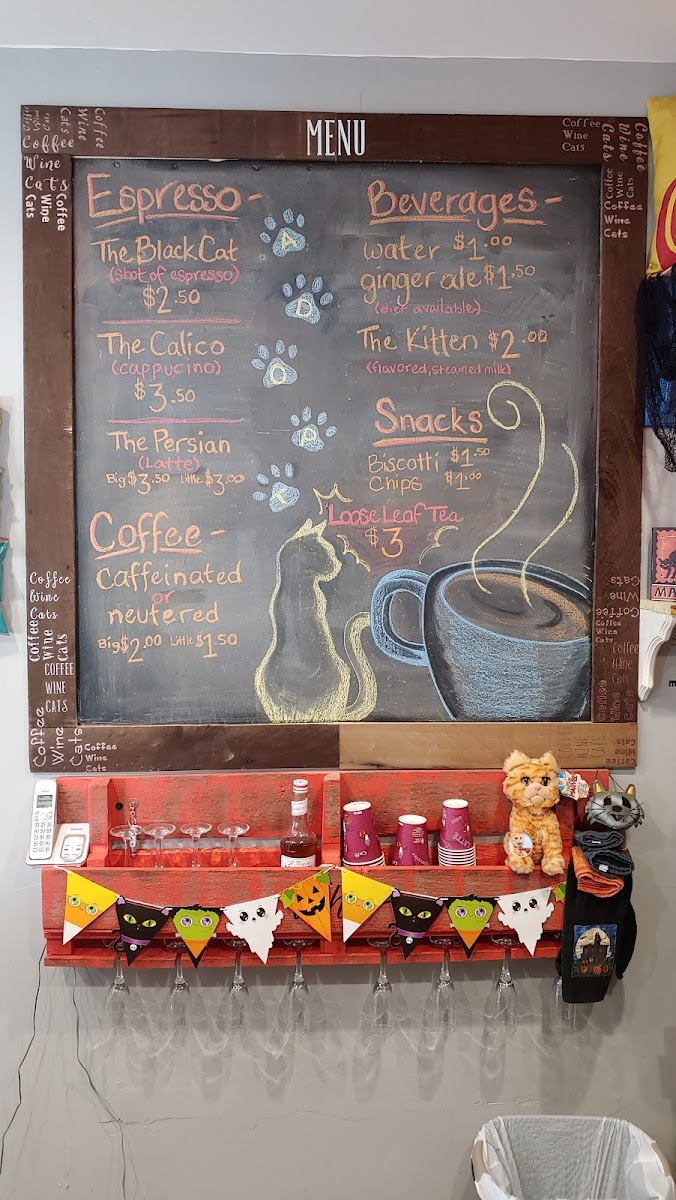 MENU
Coffee
Wine
Cats
Coffee
Wine
Cats
Coffee
Wine
Cats
Coffee
Wine
Cats
Coffee
Wine
Cats
Coffee
Wine
Cats
Coffee
Wine
Cats
Coffee
Wine
Cats
Espresso -
The Black Cat
(shot of espresso)
$2.50
The Calico
(cappucino)
$3.50
The Persian
(Latte)
Big $3.50 Little $3.00
Coffee -
caffeinated
or
neutered
Big $2.00 Little $1.50
A
D
O
P
T
Beverages -
water $1.00
ginger ale $1.50
(diet available)
The Kitten $2.00
(flavored, steamed milk)
Snacks
Biscotti $1.50
Chips $1.00
Loose Leaf Tea
$3
Coffee
Wine
Cats
Coffee
Wine
Cats
COFFEE
WINE
CATS
Coffee
Wine
Cats
Coffee
Wine
Cats
Coffee
Wine
Cats
Coffee
Wine
Cats
Coffee
Wine
Cats
Coffee
Wine
Cats
MA